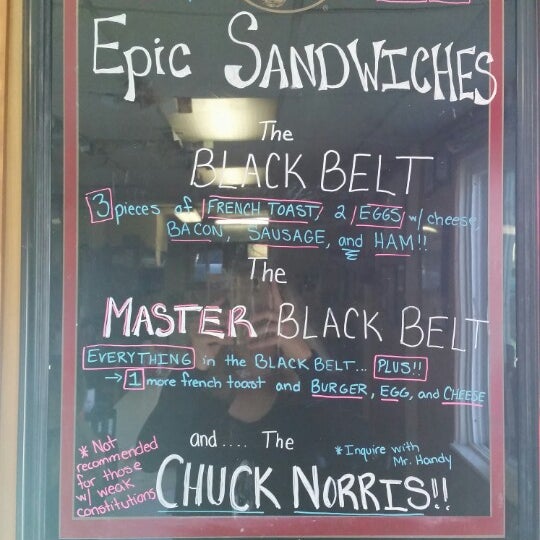 Epic SANDWICHES
The
BLACK BELT
3 pieces of FRENCH TOAST, 2 EGGS w/ cheese,
BACON, SAUSAGE, and HAM!!
The
MASTER BLACK BELT
EVERYTHING in the BLACK BELT... PLUS!!
→ 1 more french toast and BURGER, EGG, and CHEESE
and.... The
CHUCK NORRIS!!
* Not
recommended
for those
w/ weak
constitutions
* Inquire with
Mr. Handy